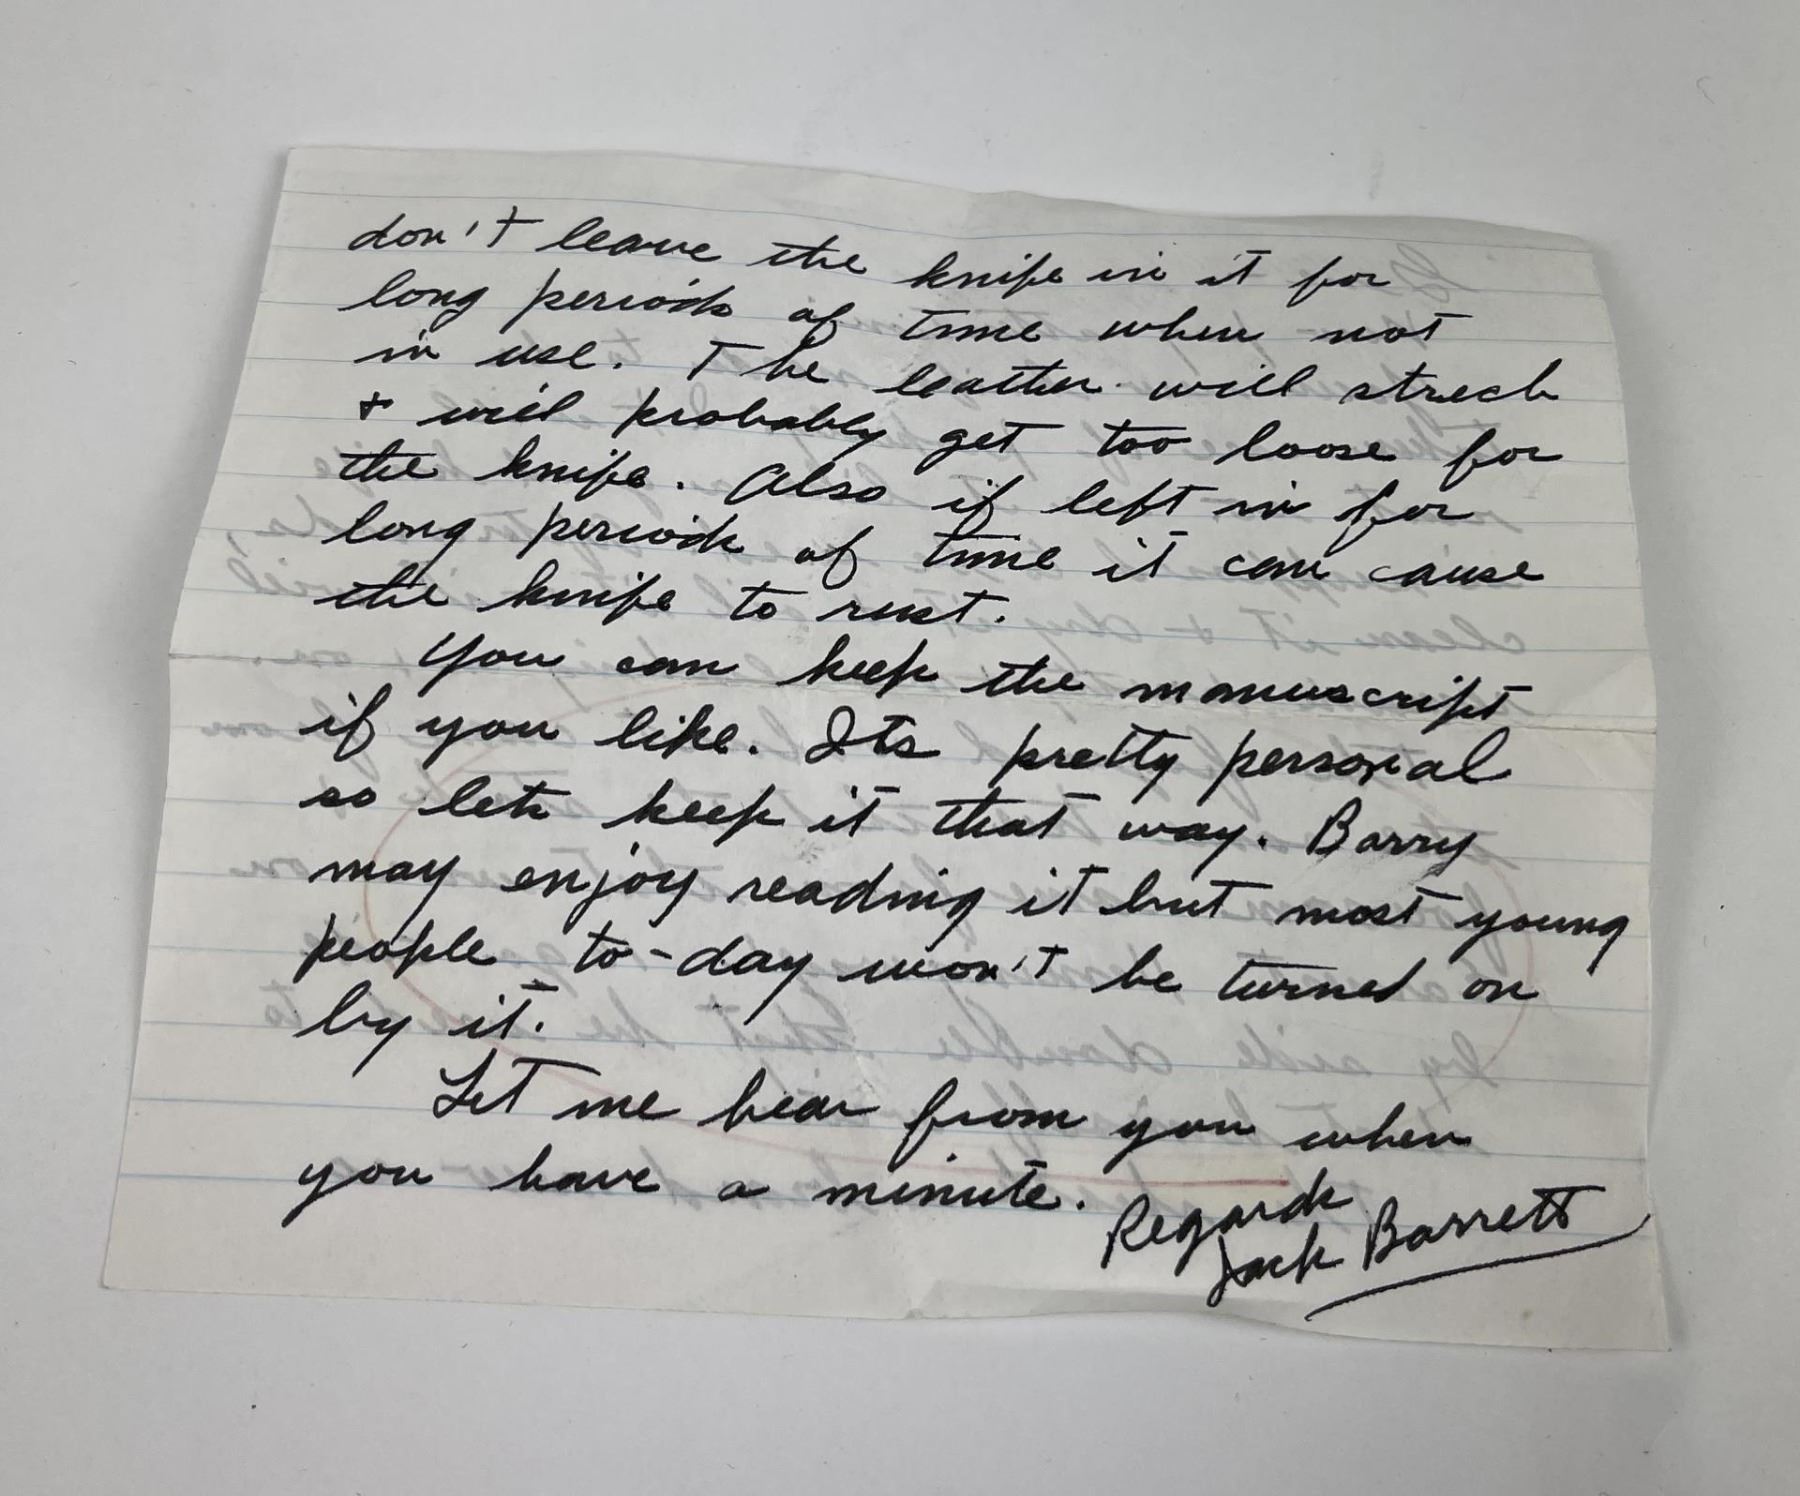 don't leave the knife in it for
long periods of time when not
in use. The leather will strech
+ will probably get too loose for
the knife. Also if left in for
long periods of time it can cause
the knife to rust.
You can keep the manuscript
if you like. Its pretty personal
so lets keep it that way. Barry
may enjoy reading it but most young
people to-day won't be turned on
by it.
Let me hear from you when
you have a minute.
Regards
Jack Barrett